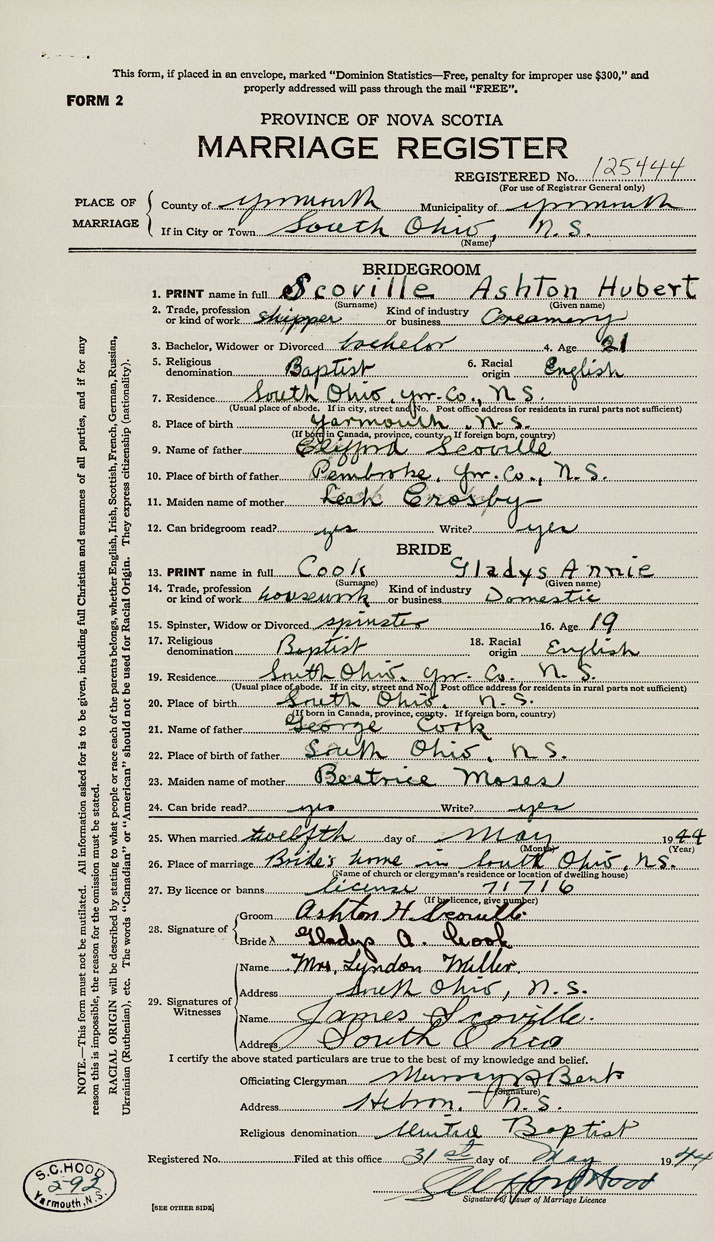 This form, if placed in an envelope, marked "Dominion Statistics—Free, penalty for improper use $300," and
properly addressed will pass through the mail "FREE".
FORM 2
PROVINCE OF NOVA SCOTIA
MARRIAGE REGISTER
REGISTERED No. 125444
(For use of Registrar General only)
PLACE OF MARRIAGE
County of Yarmouth Municipality of Yarmouth
If in City or Town South Ohio, N.S.
(Name)
BRIDEGROOM
1. PRINT name in full Scoville Ashton Hubert
(Surname) (Given name)
2. Trade, profession or kind of work shipper Kind of industry or business Creamery
3. Bachelor, Widower or Divorced bachelor 4. Age 21
5. Religious denomination Baptist 6. Racial origin English
7. Residence South Ohio, Yar. Co., N.S.
(Usual place of abode. If in city, street and No. Post office address for residents in rural parts not sufficient)
8. Place of birth Yarmouth, N.S.
(If born in Canada, province, county. If foreign born, country)
9. Name of father Clifford Scoville
10. Place of birth of father Pembroke, Yar. Co., N.S.
11. Maiden name of mother Leah Crosby
12. Can bridegroom read? yes Write? yes
BRIDE
13. PRINT name in full Cook Gladys Annie
(Surname) (Given name)
14. Trade, profession or kind of work housework Kind of industry or business Domestic
15. Spinster, Widow or Divorced spinster 16. Age 19
17. Religious denomination Baptist 18. Racial origin English
19. Residence South Ohio, Yar. Co. N.S.
(Usual place of abode. If in city, street and No. Post office address for residents in rural parts not sufficient)
20. Place of birth South Ohio, N.S.
(If born in Canada, province, county. If foreign born, country)
21. Name of father George Cook
22. Place of birth of father South Ohio, N.S.
23. Maiden name of mother Beatrice Moses
24. Can bride read? yes Write? yes
25. When married twelfth day of May 1944
(Month) (Year)
26. Place of marriage Bride's home in South Ohio, N.S.
(Name of church or clergyman's residence or location of dwelling house)
27. By licence or banns license 71716
(If by licence, give number)
28. Signature of
Groom Ashton H. Scoville
Bride X Gladys A. Cook
29. Signatures of Witnesses
Name Mrs. Lyndon Miller
Address South Ohio, N.S.
Name James Scoville
Address South Ohio
I certify the above stated particulars are true to the best of my knowledge and belief.
Officiating Clergyman Murray Bent
(Signature)
Address Hebron, N.S.
Religious denomination United Baptist
Registered No. Filed at this office 31st day of May 1944
Hood
Signature of Issuer of Marriage Licence
[SEE OTHER SIDE]
S.C. HOOD
292
Yarmouth, N.S.
NOTE.—This form must not be mutilated. All information asked for is to be given, including full Christian and surnames of all parties, and if for any
reason this is impossible, the reason for the omission must be stated.
RACIAL ORIGIN will be described by stating to what people or race each of the parents belongs, whether English, Irish, Scottish, French, German, Russian,
Ukrainian (Ruthenian), etc. The words "Canadian" or "American" should not be used for Racial Origin. They express citizenship (nationality).